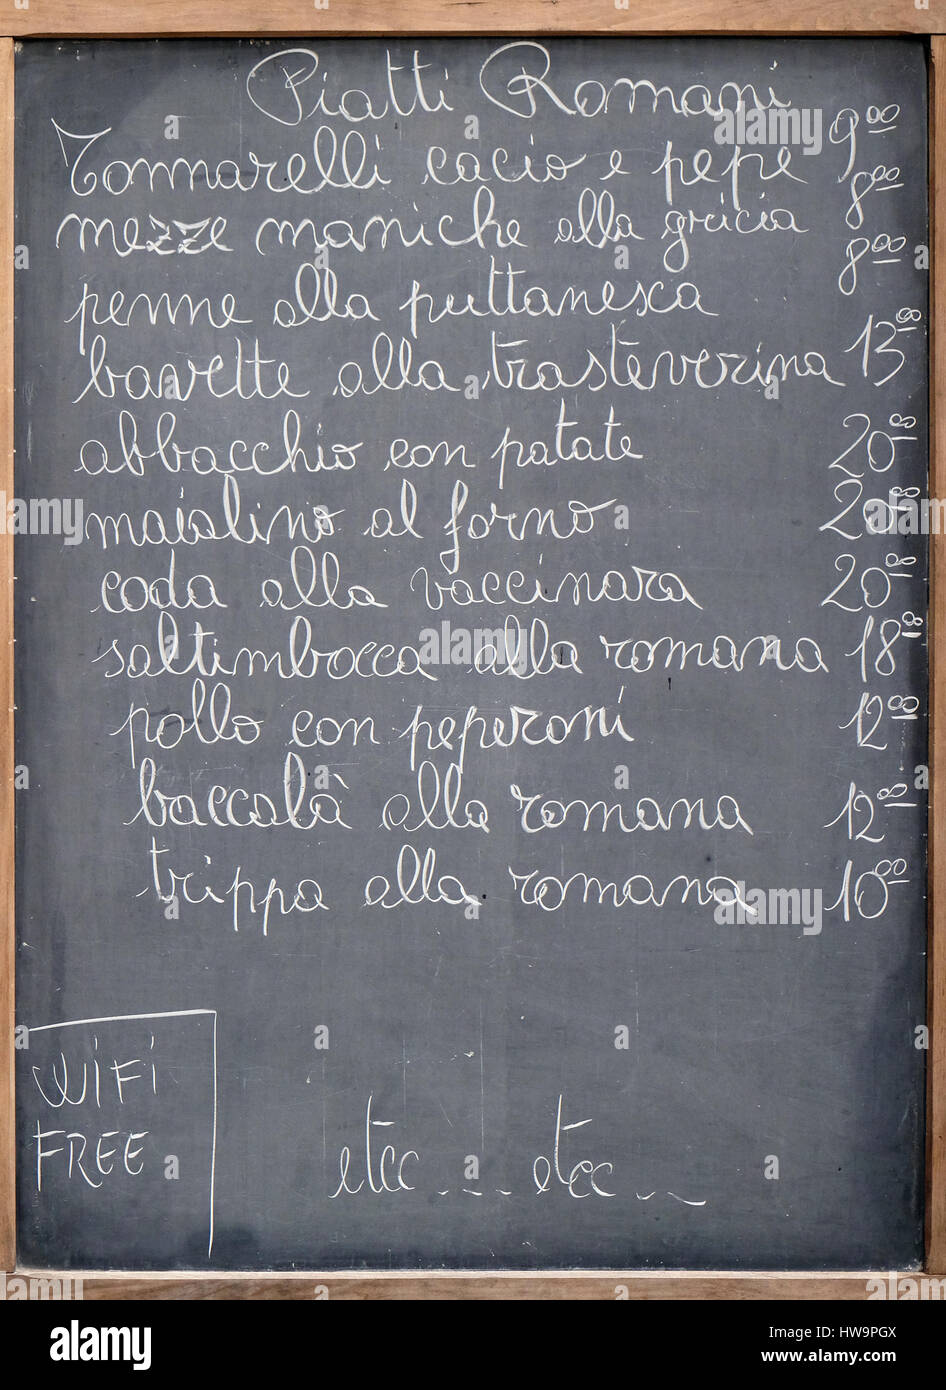 Piatti Romani
Tonnarelli cacio e pepe 9.00
mezze maniche alla gricia 8.00
penne alla puttanesca 8.00
bavette alla trasteverina 13.00
abbacchio con patate 20.00
maialino al forno 20.00
coda alla vaccinara 20.00
saltimbocca alla romana 18.00
pollo con peperoni 12.00
baccalà alla romana 12.00
trippa alla romana 10.00
WIFI
FREE
etcc ... etcc ...
alamy stock photo
HW9PGX
www.alamy.com